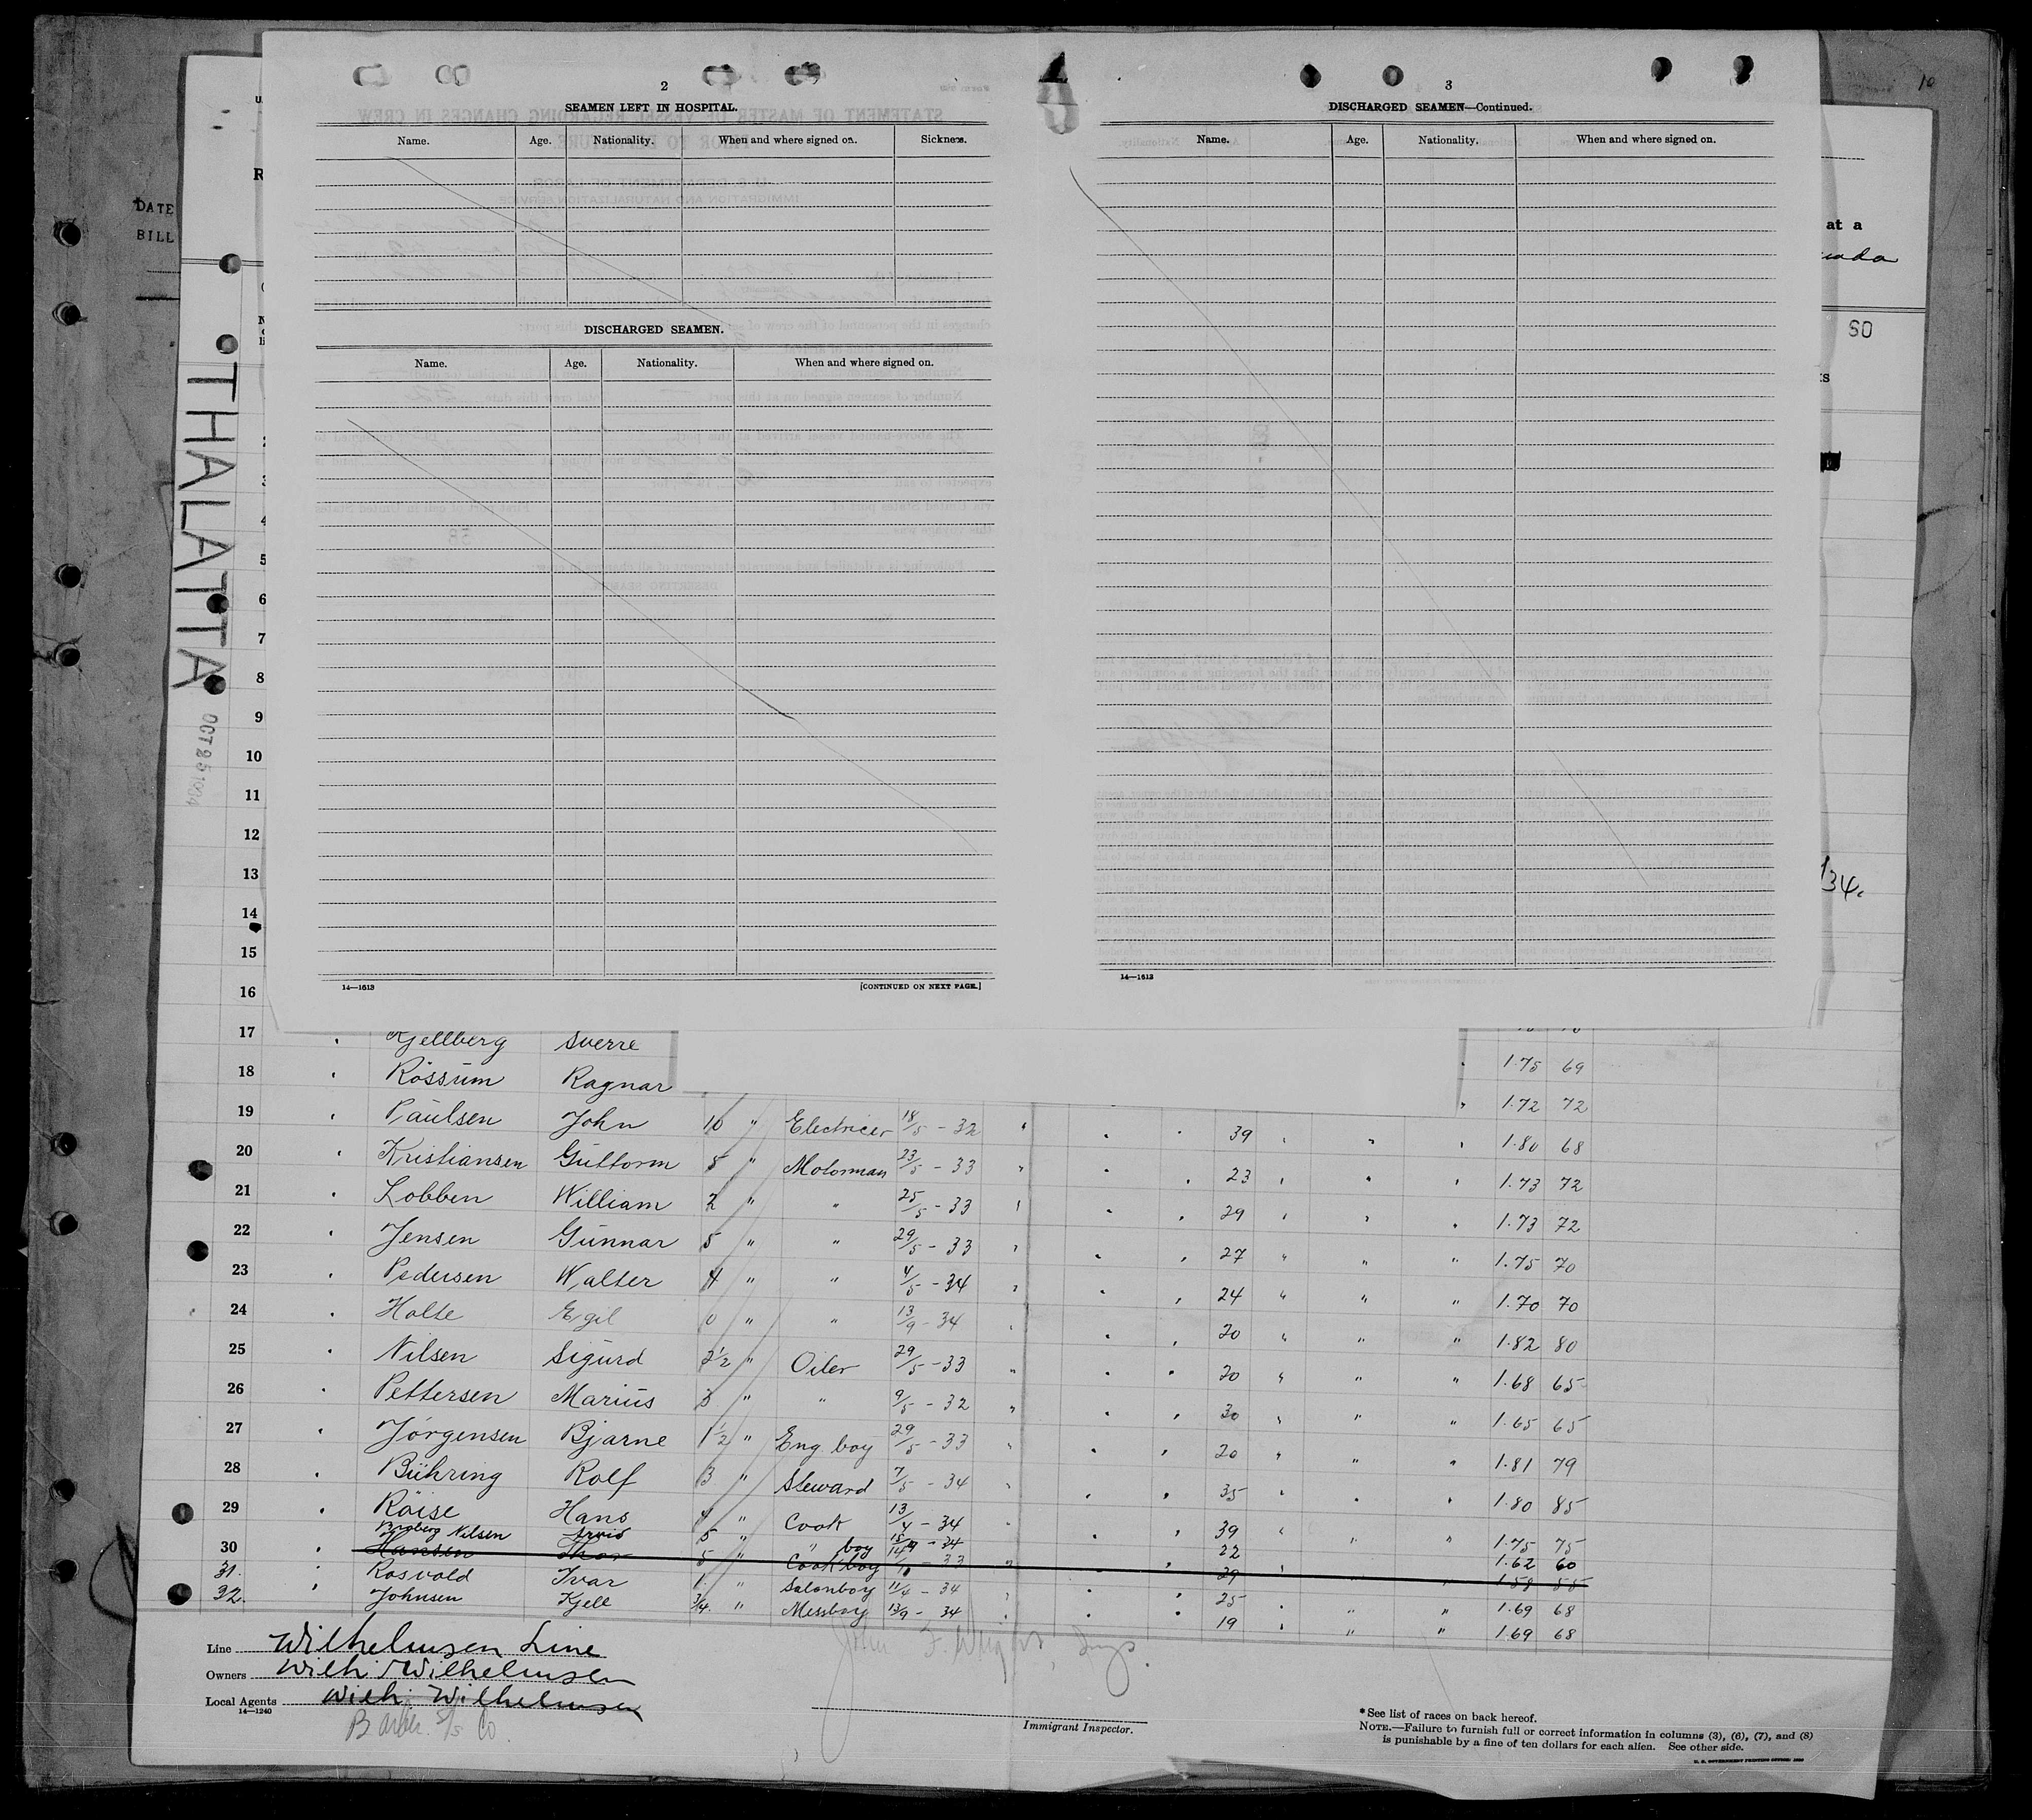 2
SEAMEN LEFT IN HOSPITAL.
Name. Age. Nationality. When and where signed on. Sickness.
DISCHARGED SEAMEN.
Name. Age. Nationality. When and where signed on.
14—1613
[CONTINUED ON NEXT PAGE.]
3
DISCHARGED SEAMEN—Continued.
Name. Age. Nationality. When and where signed on.
14—1613
10
DATE
BILL
R
at a
SO
ts
134.
THALATTA
OCT 25 1934
2
3
4
5
6
7
8
9
10
11
12
13
14
15
16
17 Kjellberg Sverre
18 Rössum Ragnar 1.75 69
19 Paulsen John 10 " Electricer 18/5 - 32 39 1.72 72
20 Kristiansen Guttorm 5 " Motorman 23/5 - 33 23 1.80 68
21 Lobben William 2 " " 25/5 - 33 29 1.73 72
22 Jensen Gunnar 5 " " 29/5 - 33 27 " " " 1.73 72
23 Pedersen Walter 4 " " 4/5 - 34 24 " " " 1.75 70
24 Holte Egil 0 " " 13/9 - 34 20 " " " 1.70 70
25 Nilsen Sigurd 2 1/2 " Oiler 29/5 - 33 20 " " " 1.82 80
26 Pettersen Marius 3 " " 9/5 - 32 30 " " " 1.68 65
27 Jörgensen Bjarne 1 1/2 " Eng. boy 29/5 - 33 20 " " " 1.65 65
28 Bühring Rolf 3 " Steward 7/5 - 34 35 1.81 79
29 Röise Hans 4 " Cook 13/4 - 34 39 1.80 85
Nilsen Arvid 5 " " boy - 34 22 1.75 75
30 Hansen Thor 5 " Cookboy - 33 29 1.62 60
31. Rosvold Ivar 1. " Salonboy 11/4 - 34 25 " " 1.69 68
32. Johnsen Kjell 3/4. " Messboy 13/9 - 34 19 " " 1.69 68
Line Wilhelmsen Line
Owners Wilh. Wilhelmsen
Local Agents Wilh. Wilhelmsen
14—1240
Barber S/S Co.
John F. Wright, Insp.
Immigrant Inspector.
* See list of races on back hereof.
NOTE.—Failure to furnish full or correct information in columns (3), (6), (7), and (8)
is punishable by a fine of ten dollars for each alien. See other side.